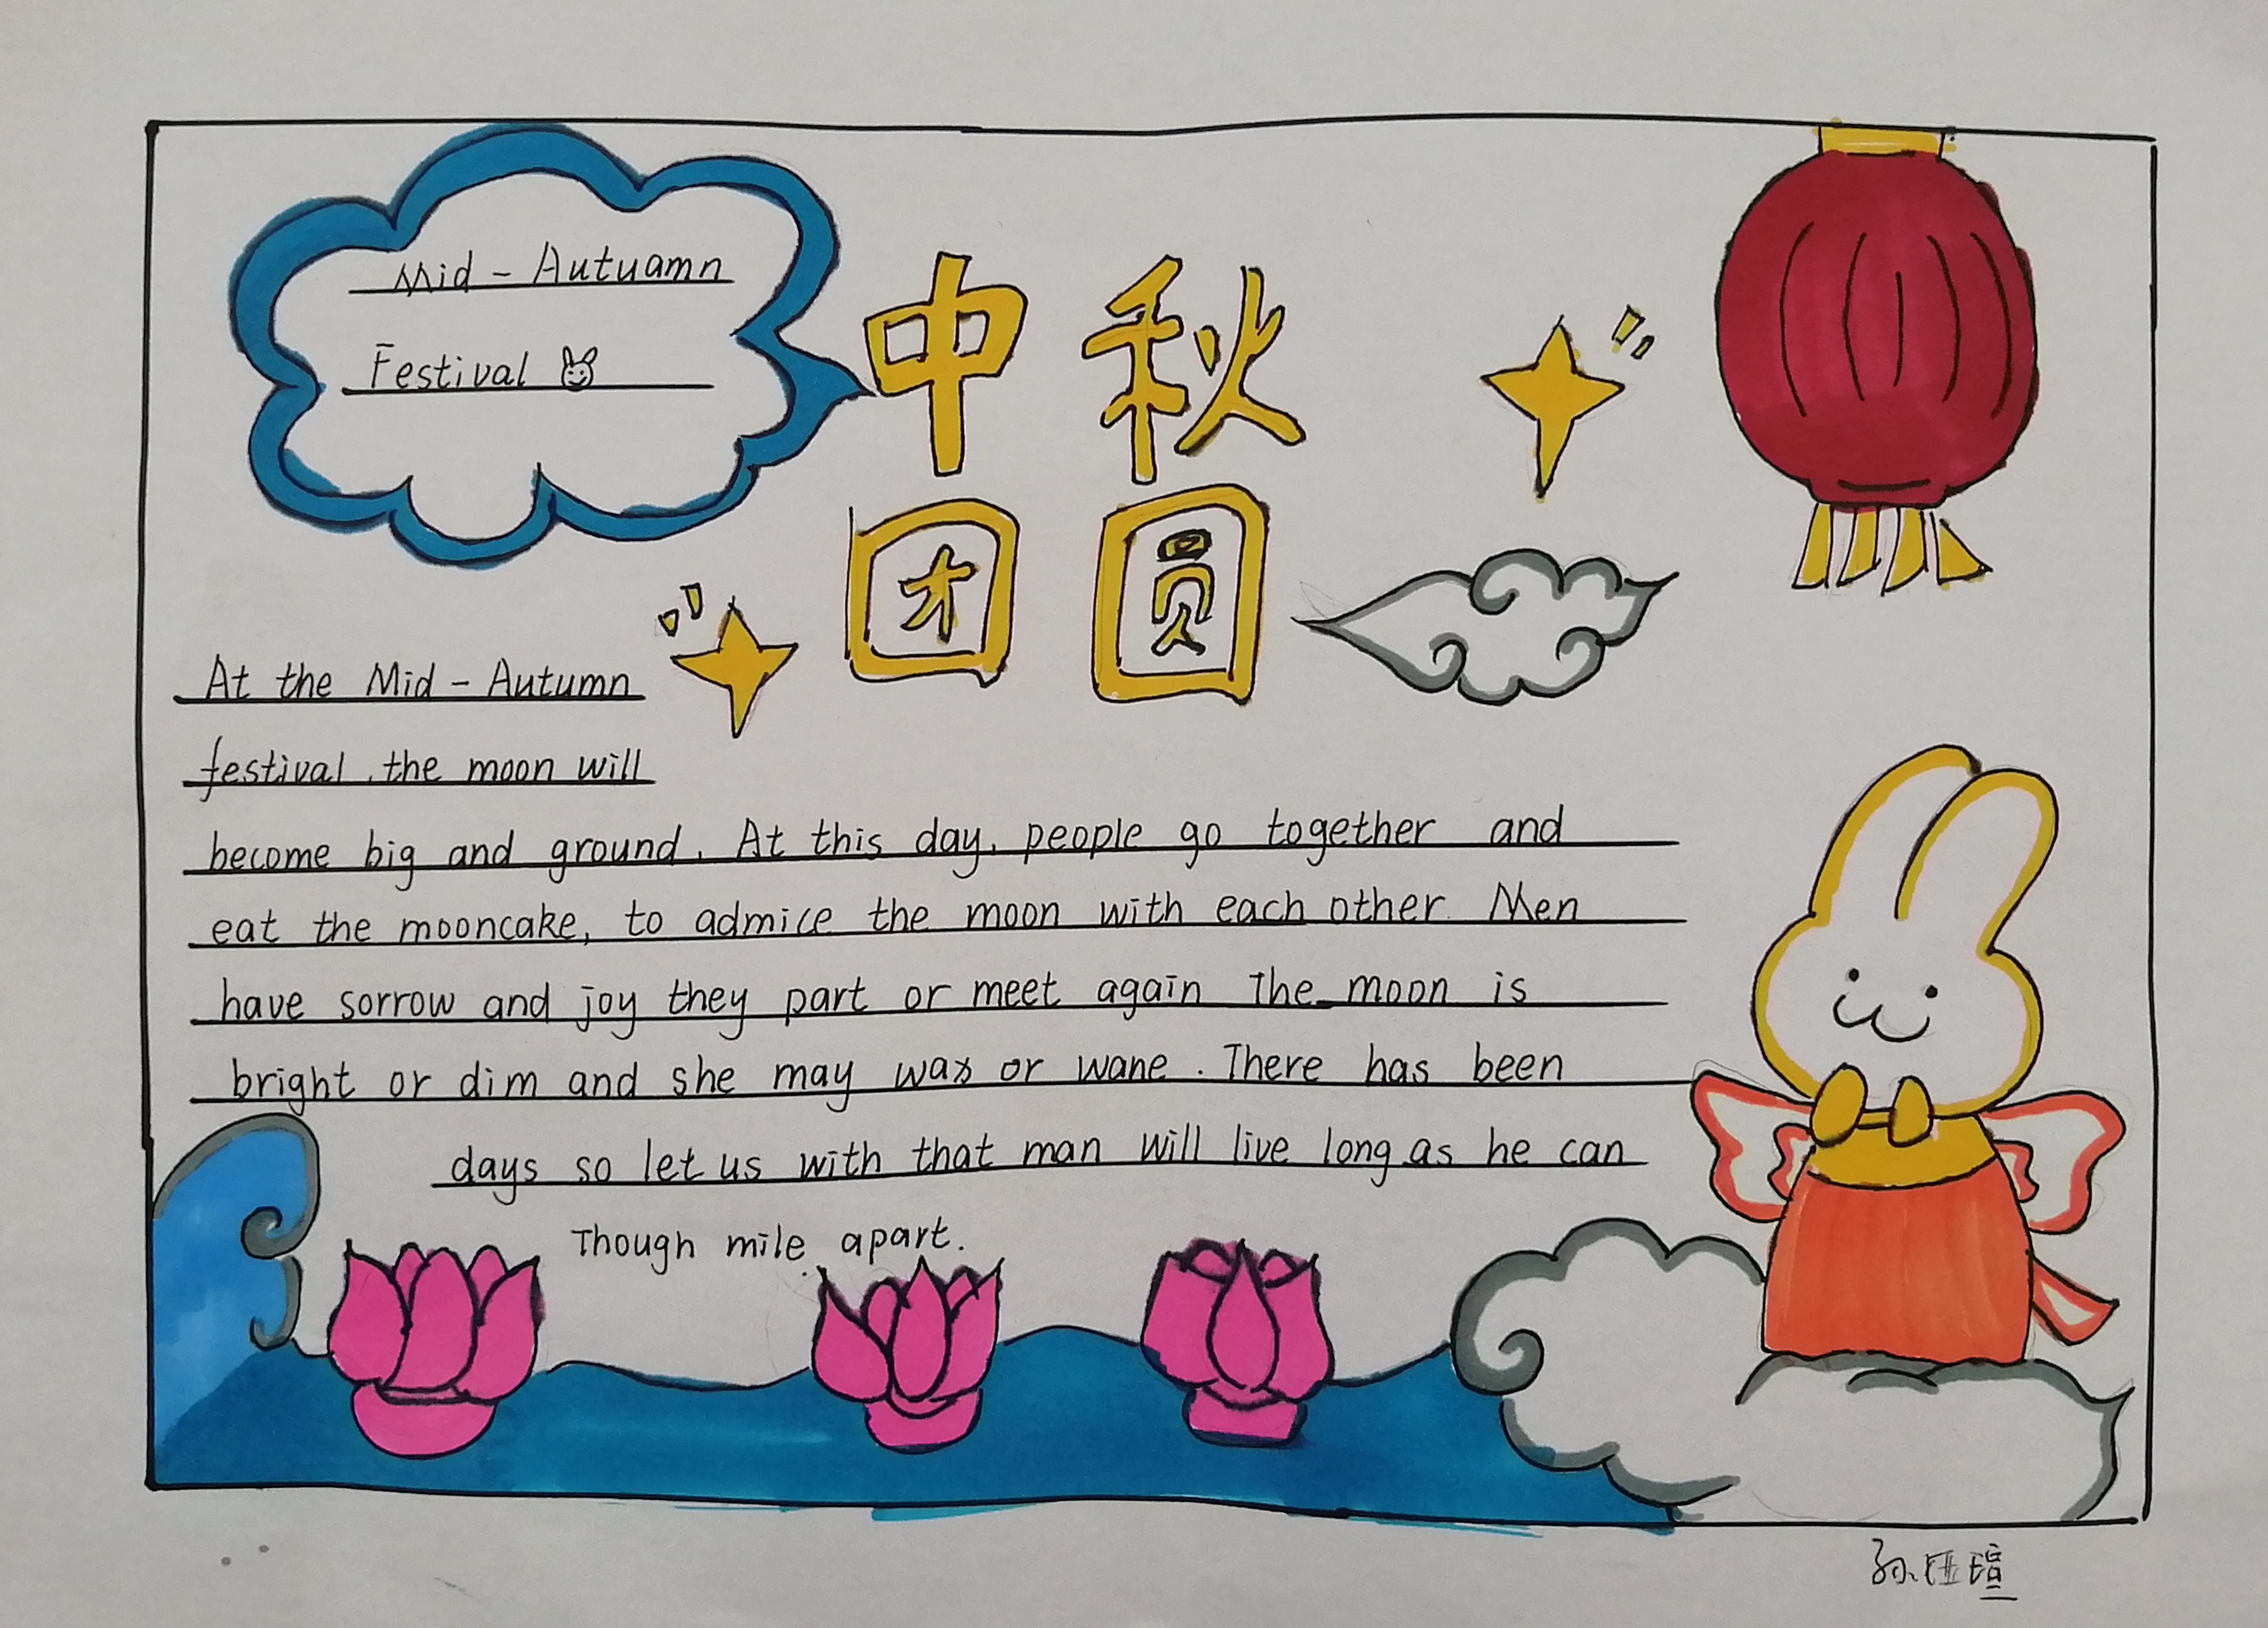 Mid - Autuamn
Festival
中秋
团圆
At the Mid - Autumn
festival, the moon will
become big and ground. At this day, people go together and
eat the mooncake, to admice the moon with each other. Men
have sorrow and joy they part or meet again The moon is
bright or dim and she may wax or wane. There has been
days so let us with that man will live long as he can
Though mile apart.